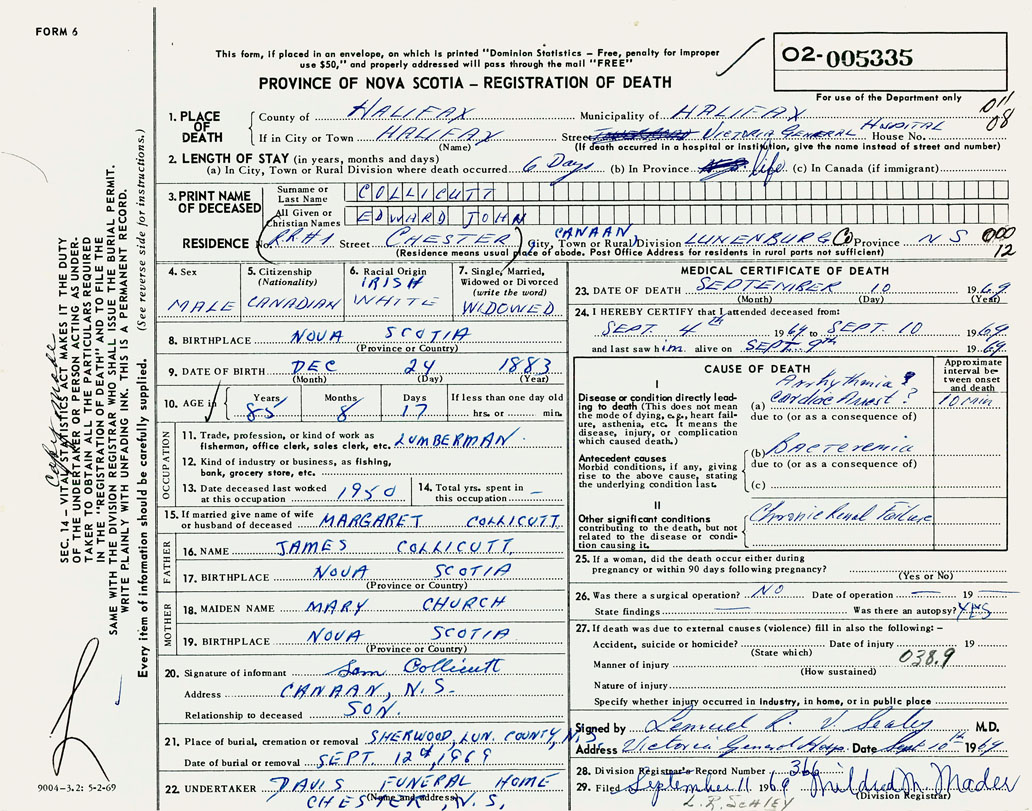 FORM 6
This form, if placed in an envelope, on which is printed "Dominion Statistics – Free, penalty for improper
use $50," and properly addressed will pass through the mail "FREE"
PROVINCE OF NOVA SCOTIA – REGISTRATION OF DEATH
O2-005335
For use of the Department only
011
08
1. PLACE OF DEATH
County of HALIFAX Municipality of HALIFAX
If in City or Town HALIFAX Street VICTORIA GENERAL HOSPITAL House No.
(Name) (If death occurred in a hospital or institution, give the name instead of street and number)
2. LENGTH OF STAY (in years, months and days)
(a) In City, Town or Rural Division where death occurred 6 Days (b) In Province life (c) In Canada (if immigrant)
3. PRINT NAME OF DECEASED
Surname or Last Name COLLICUTT
All Given or Christian Names EDWARD JOHN
RESIDENCE No. RR#1 Street CHESTER City, Town or Rural Division CANAAN LUNENBURG Co Province NS 000
12
(Residence means usual place of abode. Post Office Address for residents in rural parts not sufficient)
4. Sex MALE
5. Citizenship (Nationality) CANADIAN
6. Racial Origin IRISH WHITE
7. Single, Married, Widowed or Divorced (write the word) WIDOWED
8. BIRTHPLACE NOVA SCOTIA
(Province or Country)
9. DATE OF BIRTH DEC 24 1883
(Month) (Day) (Year)
10. AGE in Years 85 Months 8 Days 17 If less than one day old hrs. or min.
OCCUPATION
11. Trade, profession, or kind of work as
fisherman, office clerk, sales clerk, etc. LUMBERMAN
12. Kind of industry or business, as fishing,
bank, grocery store, etc.
13. Date deceased last worked at this occupation 1950
14. Total yrs. spent in this occupation –
15. If married give name of wife
or husband of deceased MARGARET COLLICUTT
FATHER
16. NAME JAMES COLLICUTT
17. BIRTHPLACE NOVA SCOTIA
(Province or Country)
MOTHER
18. MAIDEN NAME MARY CHURCH
19. BIRTHPLACE NOVA SCOTIA
(Province or Country)
20. Signature of informant Sam Collicutt
Address CANAAN, N.S.
Relationship to deceased SON.
21. Place of burial, cremation or removal SHERWOOD, LUN. COUNTY, N.S.
Date of burial or removal SEPT 12th, 1969
22. UNDERTAKER DAVIS FUNERAL HOME
(Name and address)
CHESTER, N.S.
MEDICAL CERTIFICATE OF DEATH
23. DATE OF DEATH SEPTEMBER 10 1969
(Month) (Day) (Year)
24. I HEREBY CERTIFY that I attended deceased from:
SEPT. 4th 1969 to SEPT. 10 1969
and last saw him alive on SEPT 9th 1969
CAUSE OF DEATH
Approximate interval between onset and death
I
Disease or condition directly leading to death (This does not mean the mode of dying, e.g., heart failure, asthenia, etc. It means the disease, injury, or complication which caused death.)
Arrhythmia?
(a) Cardiac Arrest? 10 min
due to (or as a consequence of)
Antecedent causes
Morbid conditions, if any, giving rise to the above cause, stating the underlying condition last.
(b) Bacteremia
due to (or as a consequence of)
(c)
II
Other significant conditions
contributing to the death, but not related to the disease or condition causing it.
Chronic Renal Failure
25. If a woman, did the death occur either during
pregnancy or within 90 days following pregnancy?
(Yes or No)
26. Was there a surgical operation? NO Date of operation — 19 —
State findings — Was there an autopsy? YES
27. If death was due to external causes (violence) fill in also the following: –
Accident, suicide or homicide? Date of injury 19
(State which) 038.9
Manner of injury
(How sustained)
Nature of injury
Specify whether injury occurred in Industry, in home, or in public place
Signed by Lemuel R. Sealy M.D.
Address Victoria General Hosp. Date Sept 10th 1969
28. Division Registrar's Record Number 366
29. Filed September 11 1969 Mildred M. Mader
(Division Registrar)
SEC. 14 – VITAL STATISTICS ACT MAKES IT THE DUTY
OF THE UNDERTAKER OR PERSON ACTING AS UNDERTAKER TO OBTAIN ALL THE PARTICULARS REQUIRED
IN THE "REGISTRATION OF DEATH" AND TO FILE THE
SAME WITH THE DIVISION REGISTRAR WHO SHALL ISSUE THE BURIAL PERMIT.
WRITE PLAINLY WITH UNFADING INK. THIS IS A PERMANENT RECORD.
Every item of information should be carefully supplied. (See reverse side for instructions.)
Copy made
9004–3.2: 5-2-69